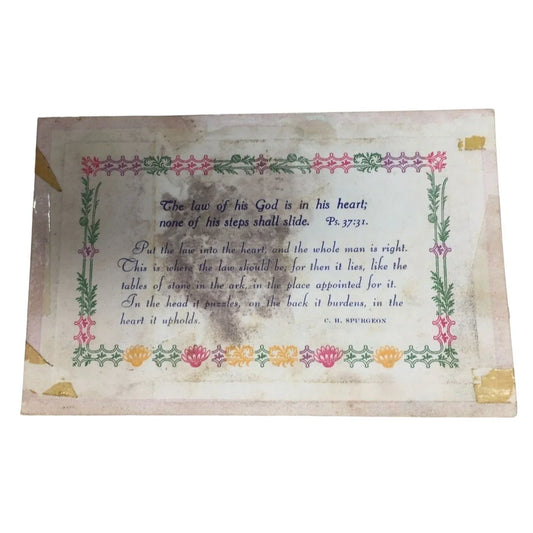 The law of his God is in his heart;
none of his steps shall slide. Ps. 37:31.
Put the law into the heart, and the whole man is right.
This is where the law should be; for then it lies, like the
tables of stone in the ark, in the place appointed for it.
In the head it puzzles, on the back it burdens, in the
heart it upholds. C. H. SPURGEON